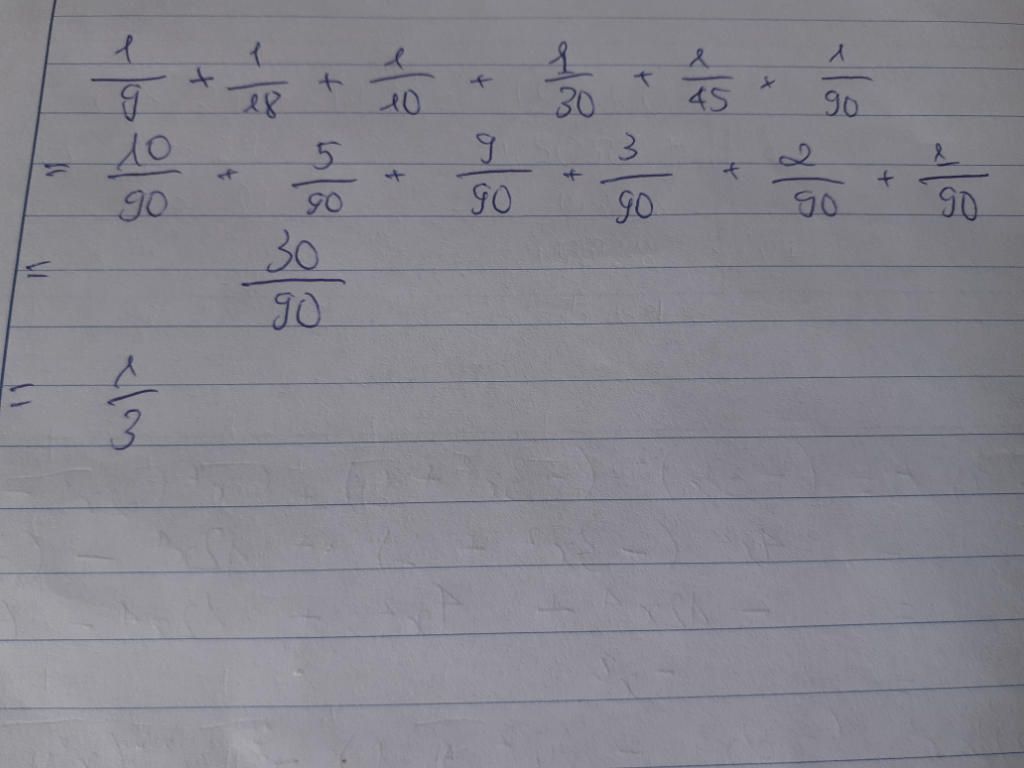 1/9 + 1/18 + 1/10 + 1/30 + 1/45 + 1/90
= 10/90 + 5/90 + 9/90 + 3/90 + 2/90 + 1/90
= 30/90
= 1/3